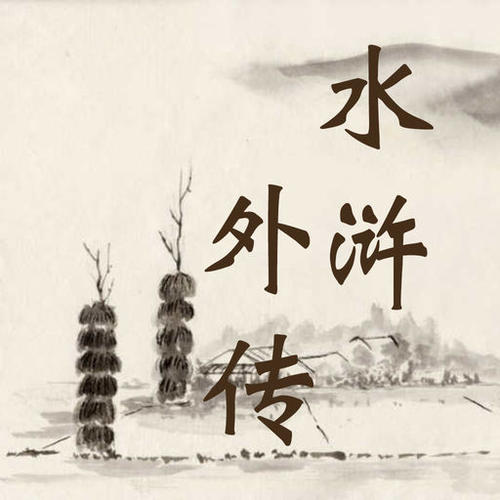 水浒
外传